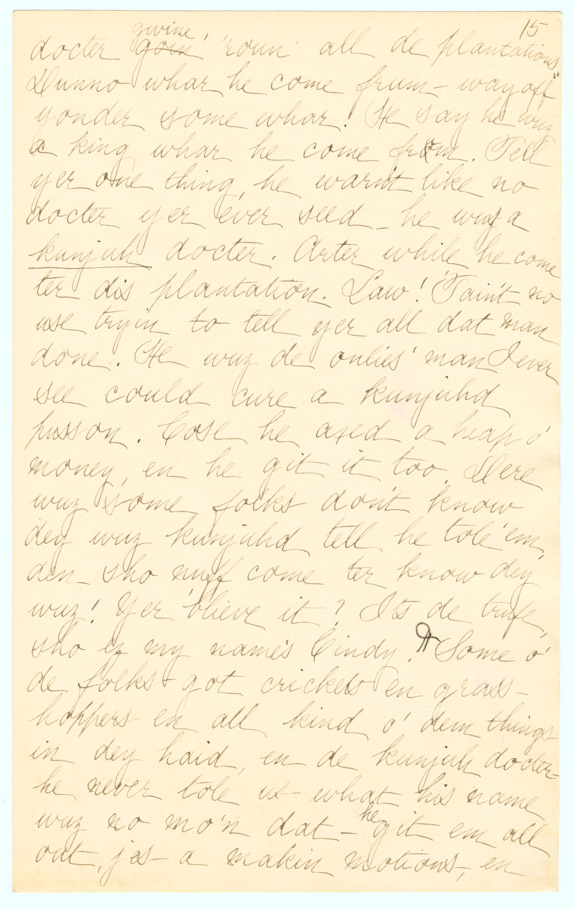 15
docter gwine goin' 'roun' all de plantations"
Dunno whar he come frum – way off
yonder some whar! He say he wuz
a king whar he come frum. Tell
yer one thing, he warn't like no
docter yer ever seed – he wuz a
kunjuh docter. Arter while he come
ter dis plantation. Law! 'Tain't no
use tryin to tell yer all dat man
done. He wuz de onlies' man I ever
see could cure a kunjuhd
pusson. Cose he axed a heap o'
money, en he git it too. Dere
wuz some folks don't know
dey wuz kunjuhd tell he tole 'em,
den – sho nuff come ter know dey
wuz! Yer 'blieve it? Its de trufe,
sho ez my name's Cindy. ¶ Some o'
de folks got crickets en grass-
hoppers en all kind o' dem things
in dey haid, en de kunjuh docter –
he never tole us – what his name
wuz no mo'n dat – he git em all
out, jes – a makin motions –, en